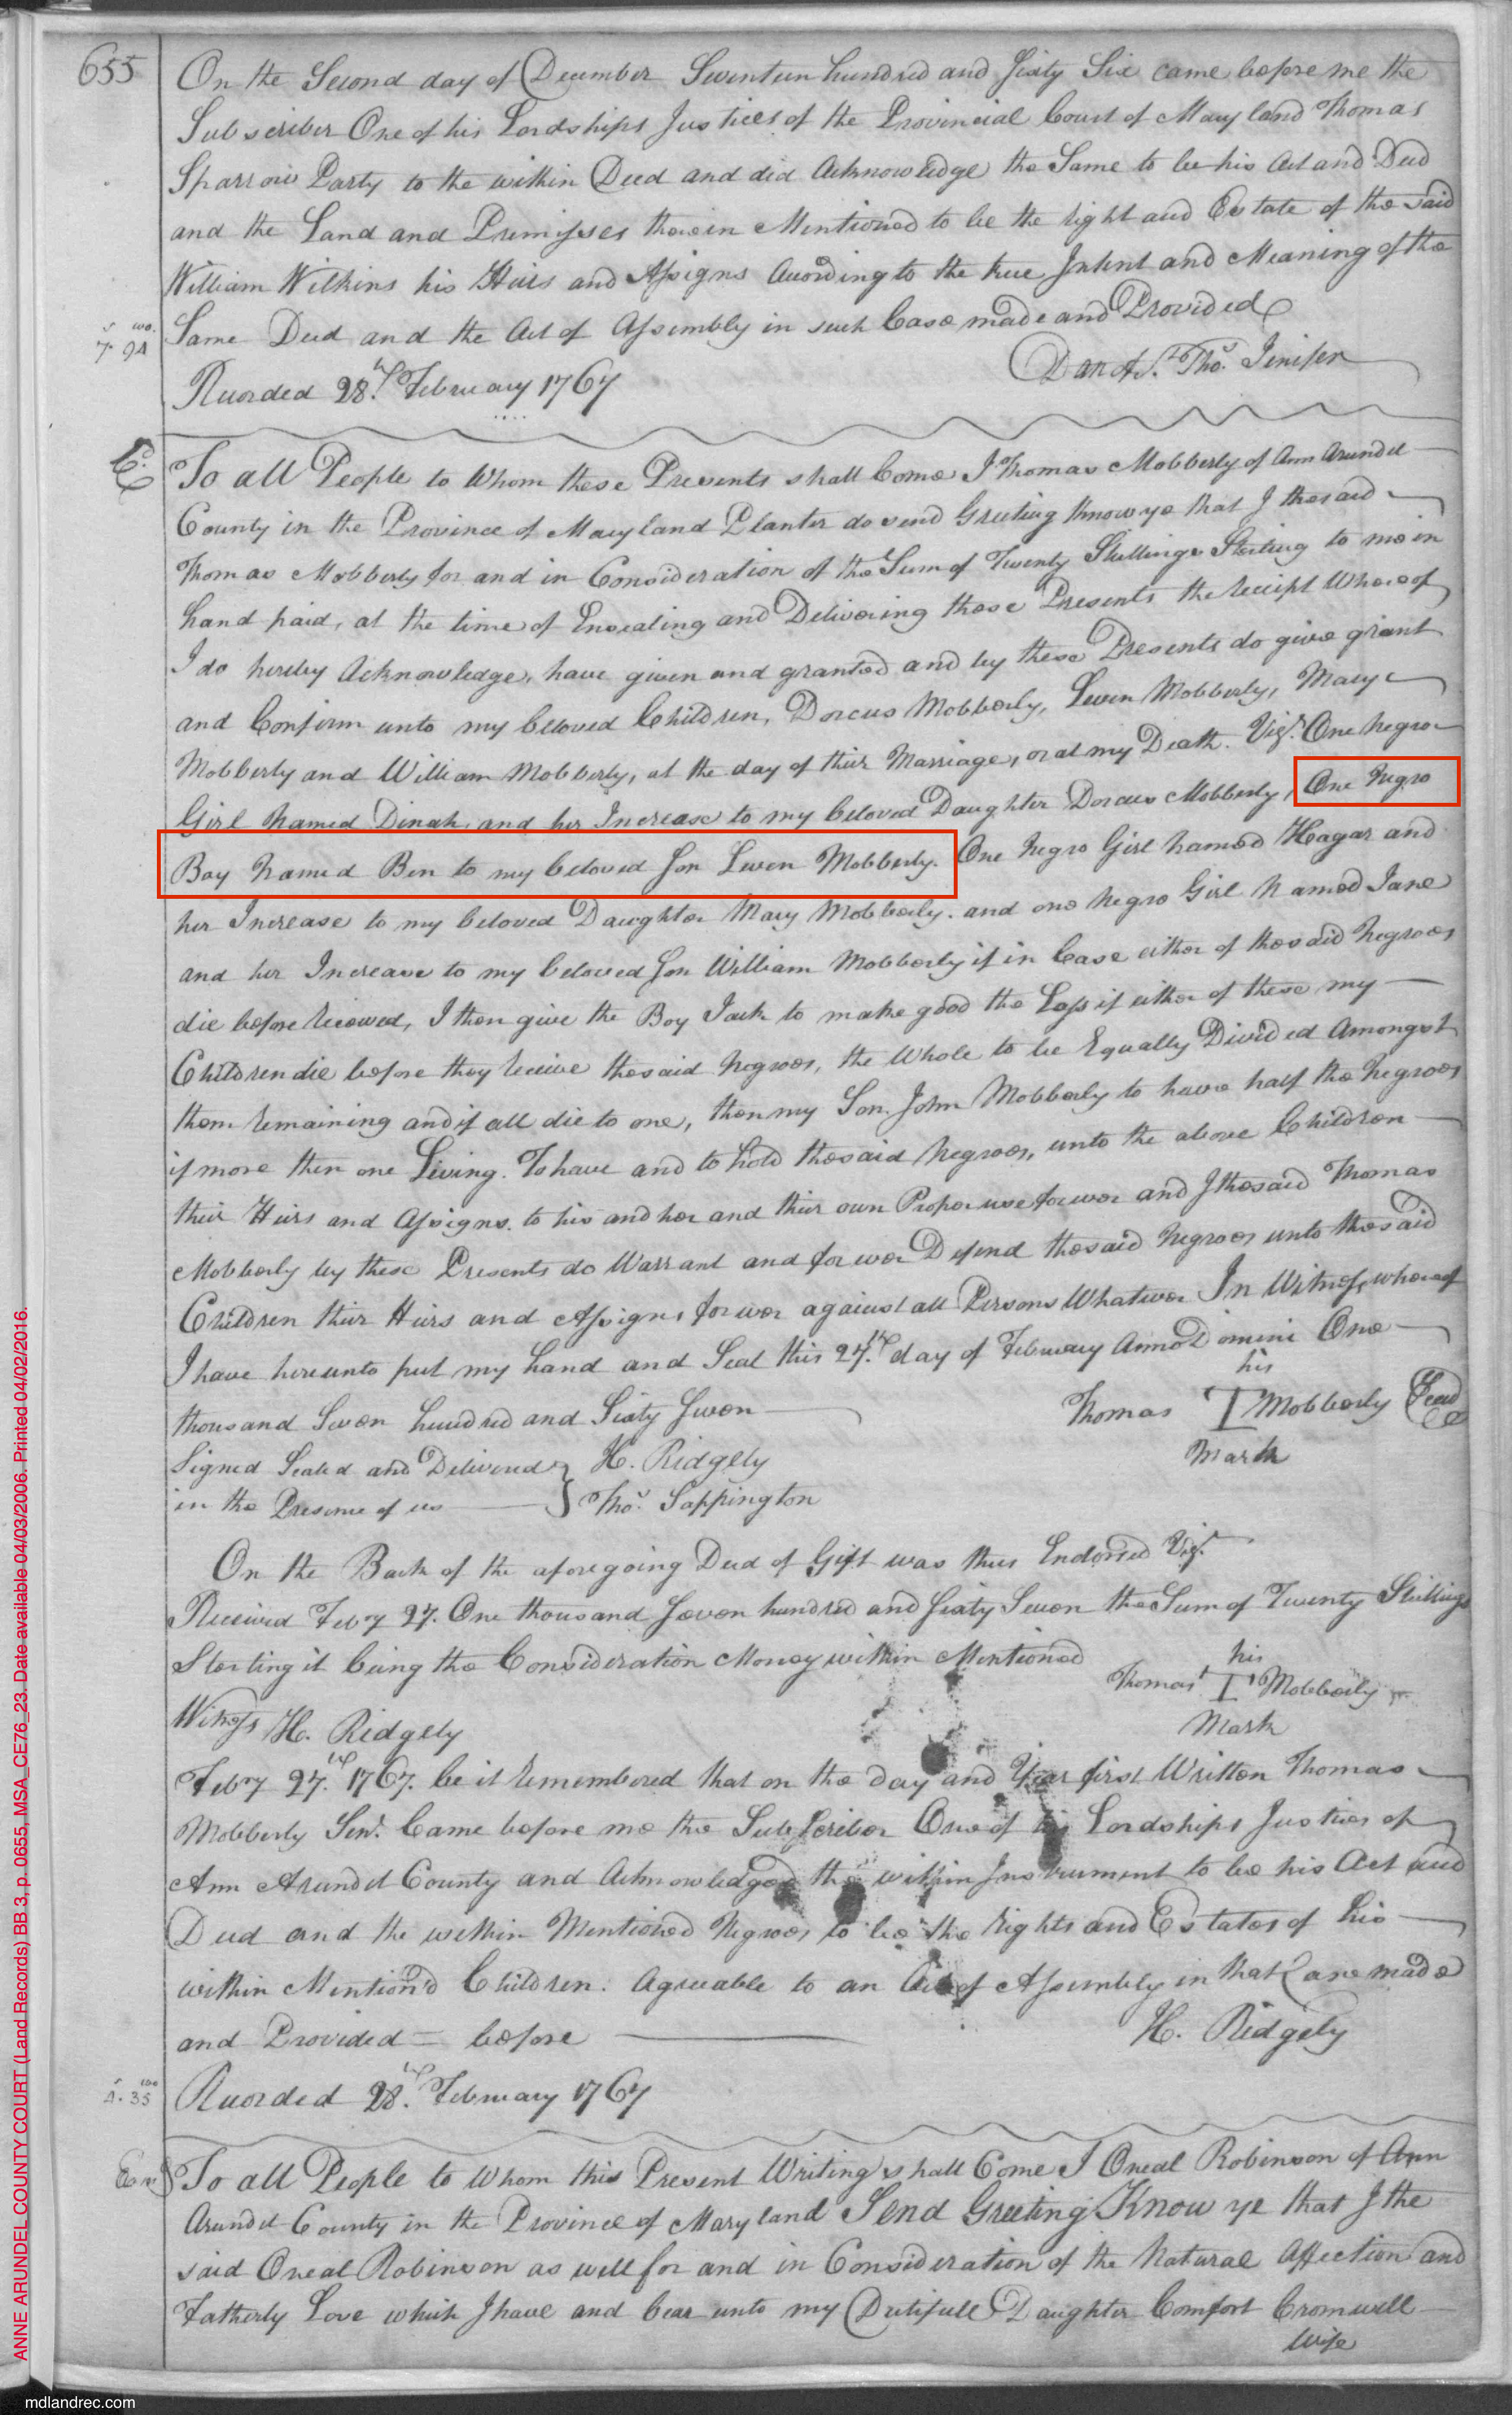 655
On the Second day of December Seventeen hundred and Sixty Six came before me the
Subscriber One of his Lordships Justices of the Provincial Court of Maryland Thomas
Sparrow Party to the within Deed and did Acknowledge the Same to be his Act and Deed
and the Land and Premisses therein Mentioned to be the right and Estate of the said
William Wilkins his Heirs and Assigns According to the true Intent and Meaning of the
Same Deed and the Act of Assembly in such Case made and Provided
Dan of St. Thos. Jenifer
Recorded 28th February 1767
To all People to Whom these Presents shall Come I Thomas Mobberly of Ann Arundel
County in the Province of Maryland Planter do send Greeting Know ye that I the said
Thomas Mobberly for and in Consideration of the Sum of Twenty Shillings Sterling to me in
hand paid, at the time of Ensealing and Delivering these Presents the receipt Whereof
I do hereby Acknowledge, have given and granted and by these Presents do give grant
and Confirm unto my beloved Children, Dorcus Mobberly, Leven Mobberly, Mary
Mobberly and William Mobberly, at the day of their Marriage, or at my Death. Vizt. One Negro
Girl Named Dinah, and her Increase to my beloved Daughter Dorcus Mobberly, One Negro
Boy Named Ben to my beloved Son Leven Mobberly. One Negro Girl Named Hagar and
her Increase to my beloved Daughter Mary Mobberly. and one Negro Girl Named Jane
and her Increase to my beloved Son William Mobberly if in Case either of the said Negroes
die before received, I then give the Boy Jack to make good the Loss if either of these my
Children die before they receive the said Negroes, the Whole to be Equally Divided Amongst
them remaining and if all die to one, then my Son John Mobberly to have half the Negroes
if more then one Living. To have and to hold the said Negroes, unto the above Children
their Heirs and Assigns. to his and her and their own Proper use forever and I the said Thomas
Mobberly by these Presents do Warrant and forever Defend the said Negroes unto the said
Children their Heirs and Assigns forever against all Persons Whatever In Witness whereof
I have hereunto put my hand and Seal this 27th day of February Anno Domini One
thousand Seven hundred and Sixty Seven
his
Thomas T Mobberly Seal
Mark
Signed Sealed and Delivered } H. Ridgely
in the Presence of us } Thos. Sappington
On the Back of the aforegoing Deed of Gift was thus Endorsed Vizt.
Received Febry 27. One thousand Seven hundred and Sixty Seven the Sum of Twenty Shillings
Sterling it being the Consideration Money within Mentioned
his
Thomas T Mobberly
Mark
Witness H. Ridgely
Febry 27th 1767. be it remembered that on the day and Year first Written Thomas
Mobberly Senr. Came before me the Subscriber One of his Lordships Justices of
Ann Arundel County and Acknowledged the within Instrument to be his Act and
Deed and the within Mentioned Negroes to be the rights and Estates of his
within Mention'd Children. Agreeable to an Act of Assembly in that Case made
and Provided before
H. Ridgely
Recorded 28th February 1767
To all People to Whom this Present Writing shall Come I Oneal Robinson of Ann
Arundel County in the Province of Maryland Send Greeting Know ye that I the
said Oneal Robinson as well for and in Consideration of the Natural Affection and
Fatherly Love which I have and bear unto my Dutifull Daughter Comfort Cromwell
Wife
ANNE ARUNDEL COUNTY COURT (Land Records) BB 3, p. 0655, MSA_CE76_23. Date available 04/03/2006. Printed 04/02/2016.
mdlandrec.com